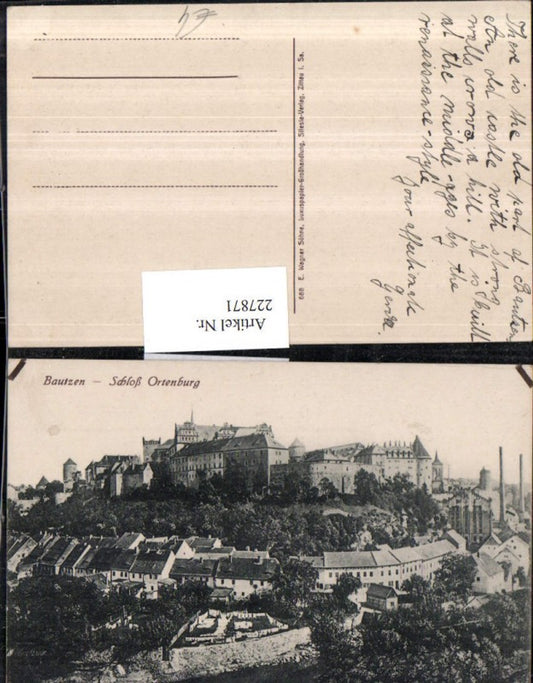 There is the old part of Bautzen
An old castle with strong
walls crowns a hill. It is built
at the middle-ages by the
renaissance-style
Your affectionate
688 E. Wagner Söhne, Luxuspapier-Großhandlung, Silesia-Verlag, Zittau i. Sa.
Artikel Nr.
227871
Bautzen – Schloß Ortenburg